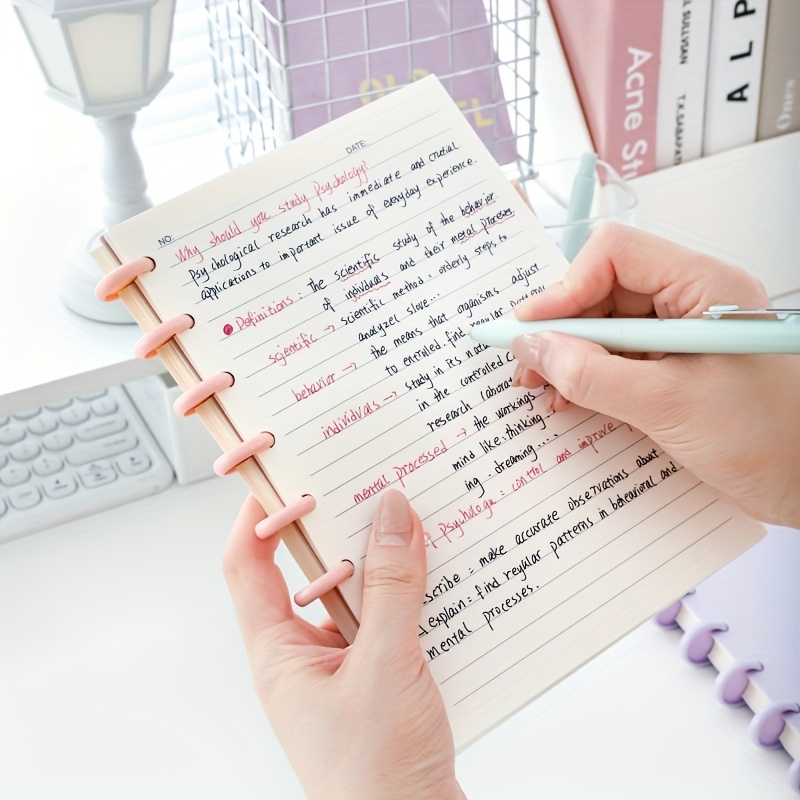 OLD
EL
Acne St
SULLIVAN
T.K.SABAPAT
ALP
Ones
DATE:
NO:
Why should you study Psychology?
Psychological research has immediate and crucial
applications to important issue of everyday experience.
Definitions : The scientific study of the behavior
of individuals and their metal proreses
scientific → scientific method . orderly steps to
analyzel slove...
behavior → the means that organisms adjust
to enrolled. find regular pattern
individuals → study in its natu
in the controlled c
research labora
mental processed → the workings
mind like: thinking
ing . dreaming ....
Psychologe : control and improve
scribe : make accurate observations about
explain : find reyular patterns in behavioral and
mental processes.